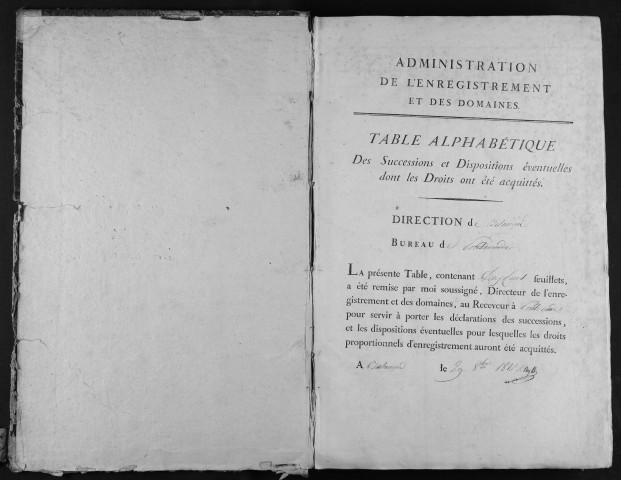 ADMINISTRATION
DE L'ENREGISTREMENT
ET DES DOMAINES.
TABLE ALPHABÉTIQUE
Des Successions et Dispositions éventuelles
dont les Droits ont été acquittés.
DIRECTION de
BUREAU de
LA présente Table, contenant feuillets,
a été remise par moi soussigné, Directeur de l'enre-
gistrement et des domaines, au Receveur à
pour servir à porter les déclarations des successions,
et les dispositions éventuelles pour lesquelles les droits
proportionnels d'enregistrement auront été acquittés.
A le 29 8bre